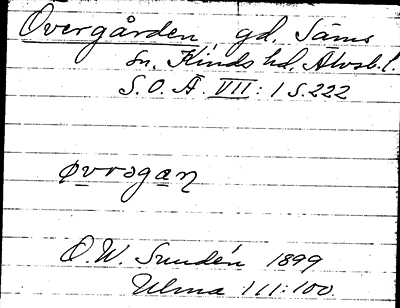 Övergården gd, Säms
sn. Kinds hd, Älvsb. l.
S.O.Ä. VII: 1 s. 222
øvrəgaɳ
O.W. Sundén 1899
Ulma 111:100.